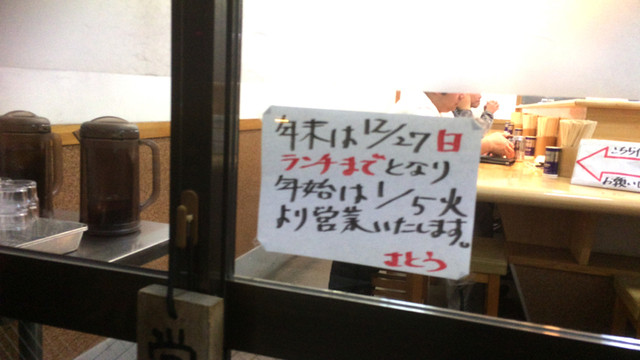 年末は12/27日
ランチまでとなり
年始は1/5火
より営業いたします。
さとう
こちら
お願い
営